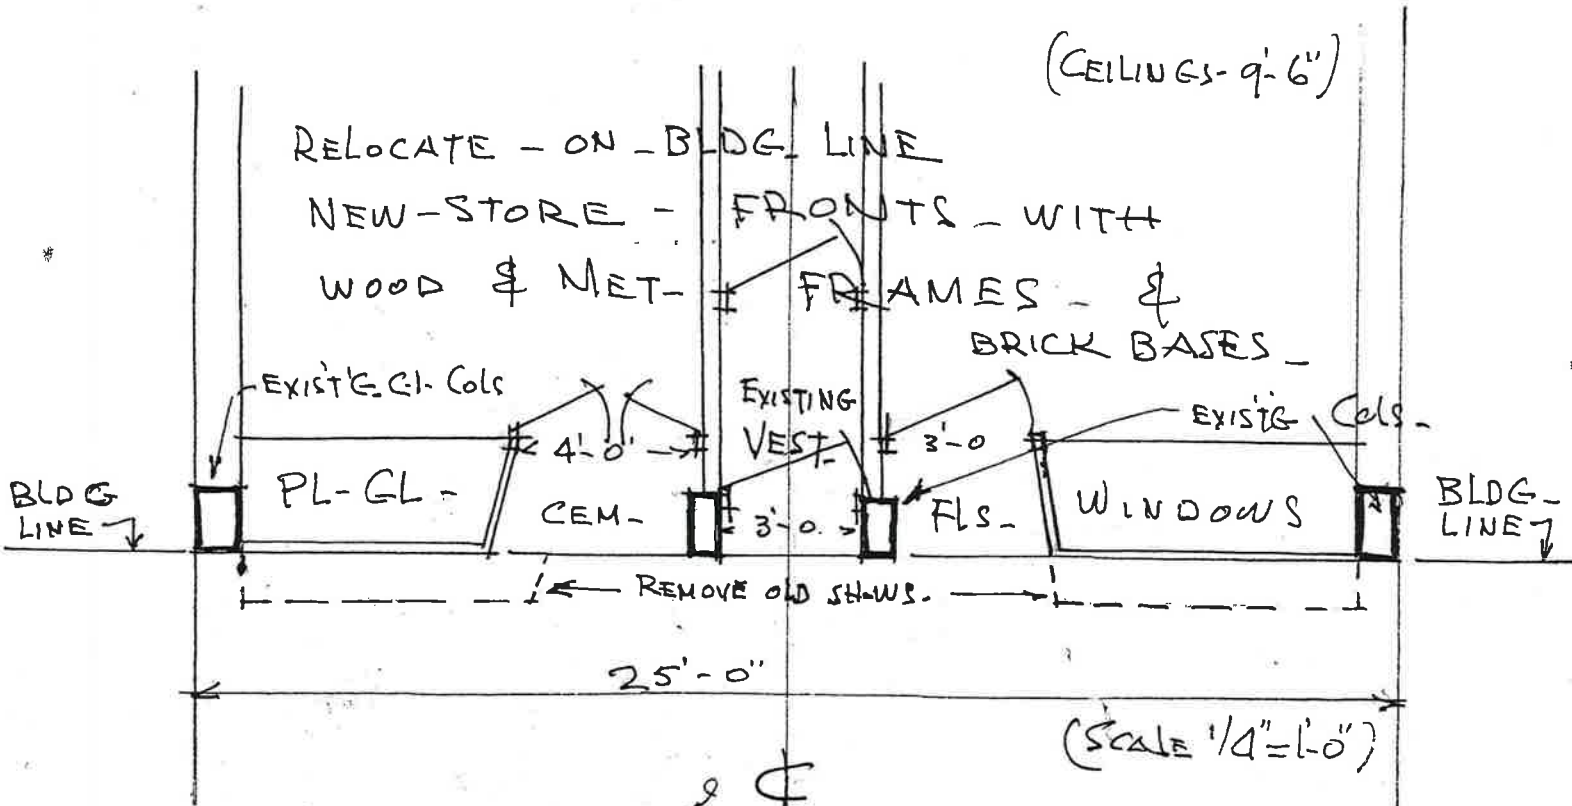 (CEILINGS- 9'-6")
RELOCATE - ON - BLDG. LINE
NEW-STORE - FRONTS - WITH
WOOD & MET- FRAMES - &
BRICK BASES -
EXIST'G. C.I. Cols
EXISTING
VEST.
EXIST'G Cols -
4'-0"
3'-0
BLDG
LINE
PL-GL-
CEM-
3'-0.
FLS-
WINDOWS
BLDG-
LINE
REMOVE OLD SH-WS.
25'-0"
(SCALE 1/4"=1'-0")
℄